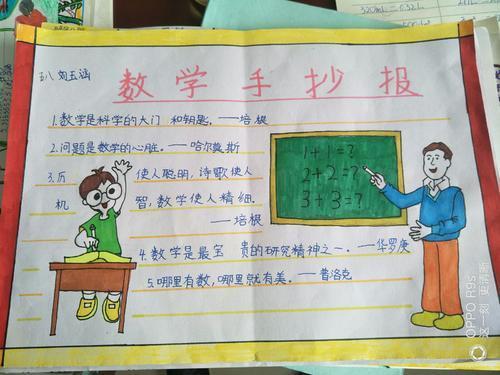 五八 刘五涵
数学手抄报
1.数学是科学的大门 和钥匙。——培根
2.问题是数学的心脏。——哈尔莫斯
3.历 使人聪明,诗歌使人
机 智,数学使人精细.
——培根
4.数学是最宝 贵的研究精神之一.——华罗庚
5.哪里有数,哪里就有美.——普洛克
1+1=?
2+2=?
3+3=?
320mL=0.32L
OPPO R9s
这一刻 更清晰